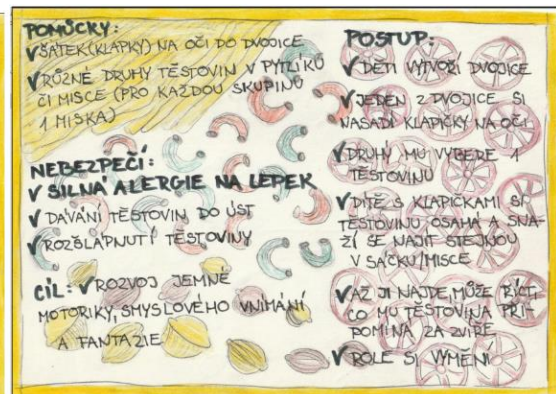 POMŮCKY:
✓ŠÁTEK(KLAPKY) NA OČI DO DVOJICE
✓RŮZNÉ DRUHY TĚSTOVIN V PYTLÍKŮ
ČI MISCE (PRO KAŽDOU SKUPINU
1 MISKA)
NEBEZPEČÍ:
✓ SILNÁ ALERGIE NA LEPEK
✓ DÁVÁNÍ TĚSTOVIN DO ÚST
✓ROZŠLÁPNUTÍ TĚSTOVINY
CÍL: ✓ROZVOJ JEMNÉ
MOTORIKY, SMYSLOVÉHO VNÍMÁNÍ
A FANTAZIE
POSTUP:
✓ DĚTI VYTVOŘÍ DVOJICE
✓JEDEN Z DVOJICE SI
NASADÍ KLAPIČKY NA OČI
✓DRUHÝ MU VYBERE 1
TĚSTOVINU
✓DÍTĚ S KLAPIČKAMI SI
TĚSTOVINU OSAHÁ A SNA-
ŽÍ SE NAJÍT STEJNOU
V SÁČKU/MISCE
✓AŽ JI NAJDE, MŮŽE ŘÍCT,
CO MU TĚSTOVINA PŘI-
POMÍNÁ ZA ZVÍŘE
✓ROLE SI VYMĚNÍ